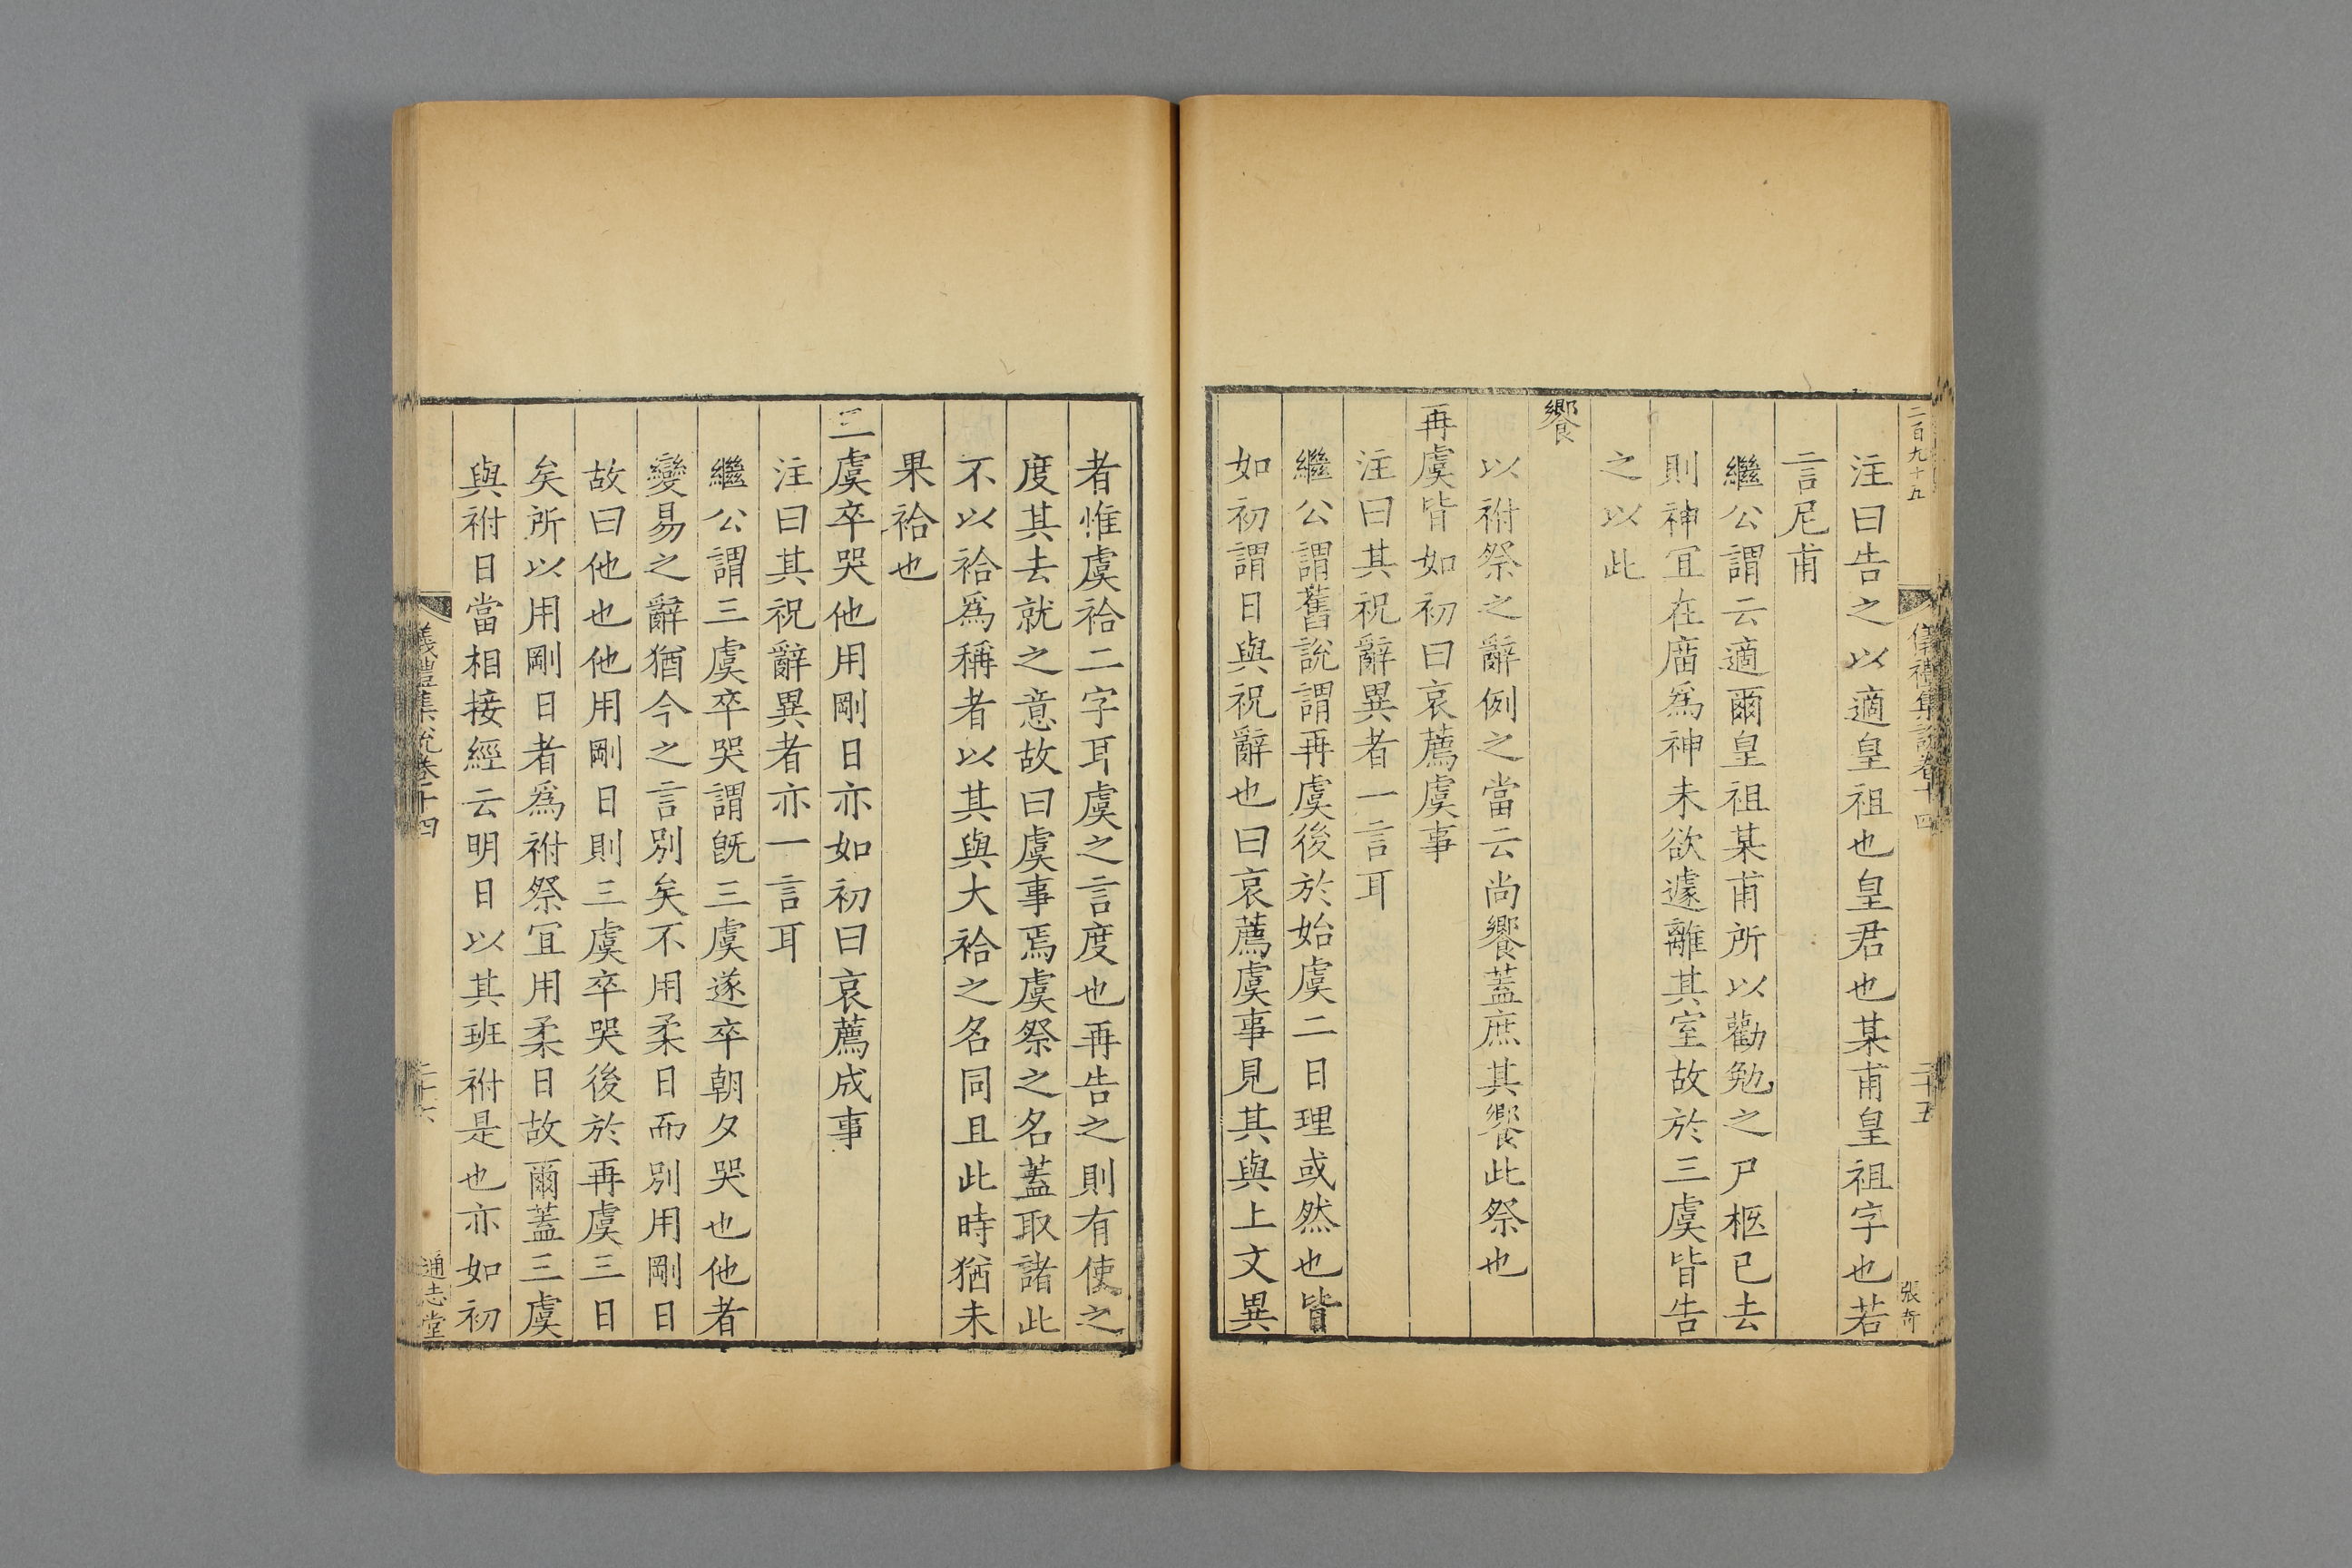 二百九十五
儀禮集說卷十四
二十五
張奇
注曰告之以適皇祖也皇君也某甫皇祖字也若
言尼甫
繼公謂云適爾皇祖某甫所以勸勉之尸柩已去
則神宜在廟爲神未欲遽離其室故於三虞皆告
之以此
饗
以祔祭之辭例之當云尚饗蓋庶其饗此祭也
再虞皆如初曰哀薦虞事
注曰其祝辭異者一言耳
繼公謂舊說謂再虞後於始虞二日理或然也皆
如初謂日與祝辭也曰哀薦虞事見其與上文異
者惟虞祫二字耳虞之言度也再告之則有使之
度其去就之意故曰虞事焉虞祭之名蓋取諸此
不以祫爲稱者以其與大祫之名同且此時猶未
果祫也
三虞卒哭他用剛日亦如初曰哀薦成事
注曰其祝辭異者亦一言耳
繼公謂三虞卒哭謂旣三虞遂卒朝夕哭也他者
變易之辭猶今之言別矣不用柔日而別用剛日
故曰他也他用剛日則三虞卒哭後於再虞三日
矣所以用剛日者爲祔祭宜用柔日故爾蓋三虞
與祔日當相接經云明日以其班祔是也亦如初
儀禮集說卷十四
二十六
通志堂